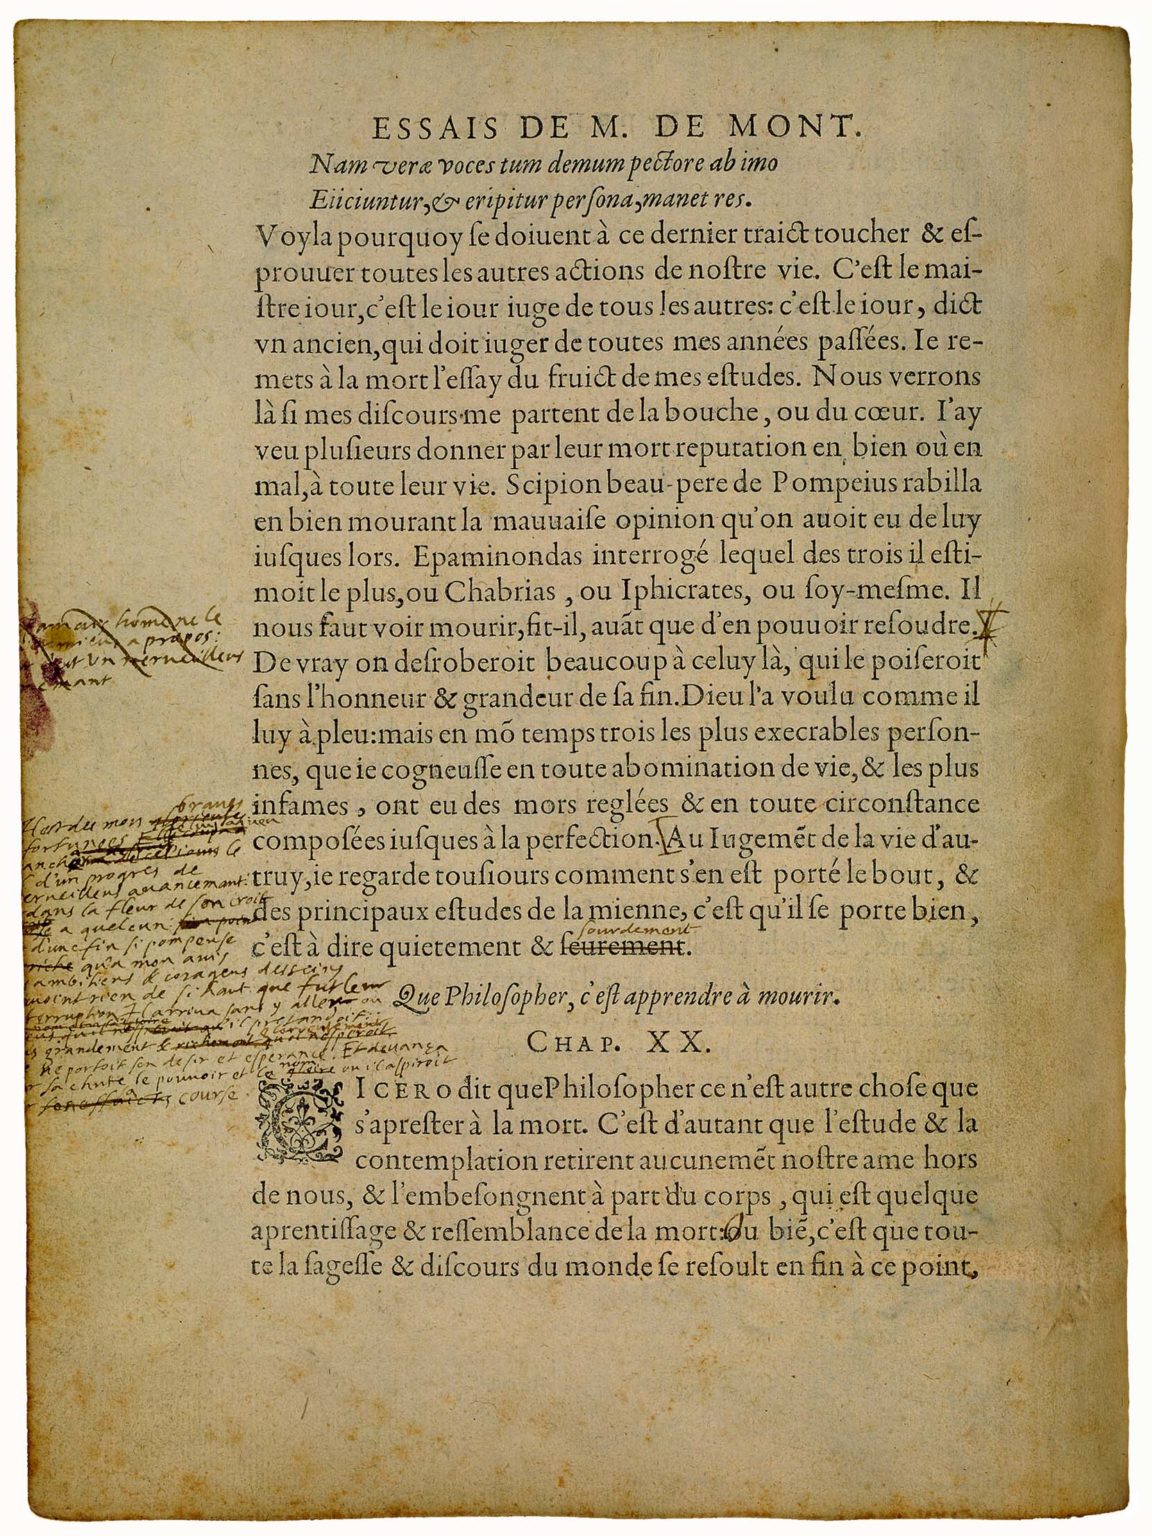 ESSAIS DE M. DE MONT.
Nam veræ voces tum demum pectore ab imo
Eiiciuntur, & eripitur perſona, manet res.
Voyla pourquoy ſe doiuent à ce dernier traict toucher & eſ-
prouuer toutes les autres actions de noſtre vie. C'eſt le mai-
ſtre iour, c'eſt le iour iuge de tous les autres: c'eſt le iour, dict
vn ancien, qui doit iuger de toutes mes années paſſées. Ie re-
mets à la mort l'eſſay du fruict de mes eſtudes. Nous verrons
là ſi mes diſcours me partent de la bouche, ou du cœur. I'ay
veu pluſieurs donner par leur mort reputation en bien où en
mal, à toute leur vie. Scipion beau-pere de Pompeius rabilla
en bien mourant la mauuaiſe opinion qu'on auoit eu de luy
iuſques lors. Epaminondas interrogé lequel des trois il eſti-
moit le plus, ou Chabrias, ou Iphicrates, ou ſoy-meſme. Il
nous faut voir mourir, fit-il, auāt que d'en pouuoir reſoudre.
De vray on deſroberoit beaucoup à celuy là, qui le poiſeroit
ſans l'honneur & grandeur de ſa fin. Dieu l'a voulu comme il
luy à pleu: mais en mō temps trois les plus execrables perſon-
nes, que ie cogneuſſe en toute abomination de vie, & les plus
infames, ont eu des mors reglées & en toute circonſtance
compoſées iuſques à la perfection. Au Iugemēt de la vie d'au-
truy, ie regarde touſiours comment s'en eſt porté le bout, &
des principaux eſtudes de la mienne, c'eſt qu'il ſe porte bien,
sourdement
c'eſt à dire quietement & ſeurement.
home ne le
a propos:
un merveilleus
braves
fortunees
d'un progres de
avancemant:
dans la fleur de son croit
a quelcun
d'une fin si pompeuse
qu'a mon avis
ambitieus & corageus desseins
rien de si haut que fut leur
Il arriva sans y aller ou
il pretandoit:
grandement &
portoit son desir et esperance. Et devança
sa chute le pouvoir et le nom ou il aspiroit
course.
Que Philoſopher, c'eſt apprendre à mourir.
CHAP. XX.
CICERO dit que Philoſopher ce n'eſt autre choſe que
s'apreſter à la mort. C'eſt d'autant que l'eſtude & la
contemplation retirent aucunemēt noſtre ame hors
de nous, & l'embeſongnent à part du corps, qui eſt quelque
aprentiſſage & reſſemblance de la mort: Ou biē, c'eſt que tou-
te la ſageſſe & diſcours du monde ſe reſoult en fin à ce point,